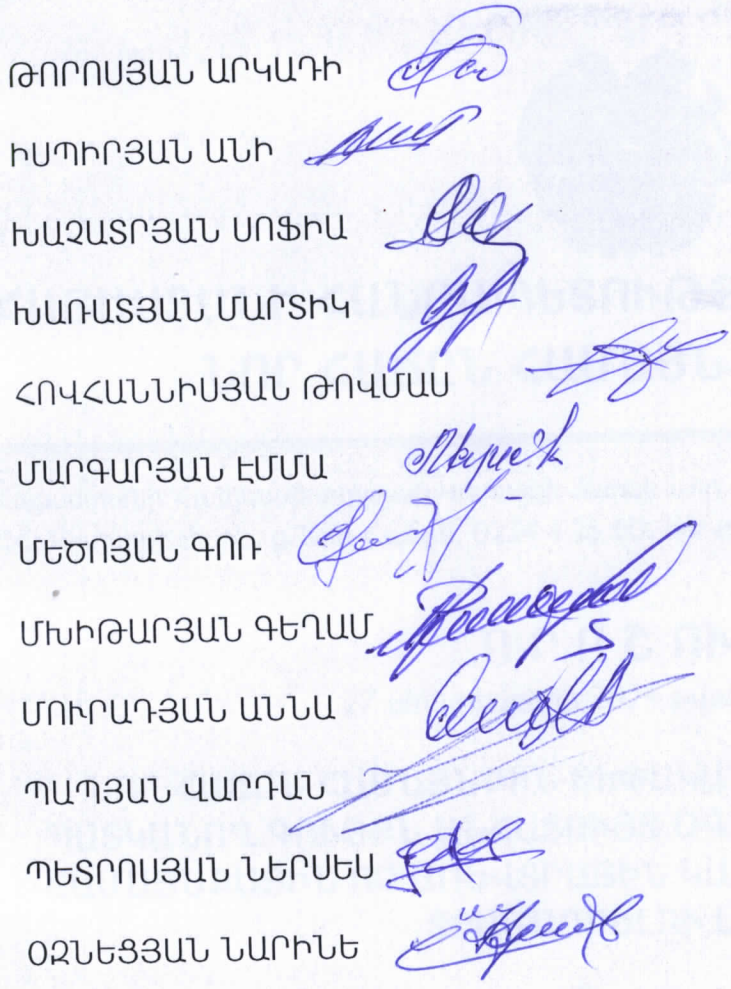 ԹՈՐՈՍՅԱՆ ԱՐԿԱԴԻ
ԻՍՊԻՐՅԱՆ ԱՆԻ
ԽԱՉԱՏՐՅԱՆ ՍՈՖԻԱ
ԽԱՌԱՏՅԱՆ ՄԱՐՏԻԿ
ՀՈՎՀԱՆՆԻՍՅԱՆ ԹՈՎՄԱՍ
ՄԱՐԳԱՐՅԱՆ ԷՄՄԱ
ՄԵԾՈՅԱՆ ԳՈՌ
ՄԽԻԹԱՐՅԱՆ ԳԵՂԱՄ
ՄՈՒՐԱԴՅԱՆ ԱՆՆԱ
ՊԱՊՅԱՆ ՎԱՐԴԱՆ
ՊԵՏՐՈՍՅԱՆ ՆԵՐՍԵՍ
ՕԶՆԵՑՅԱՆ ՆԱՐԻՆԵ